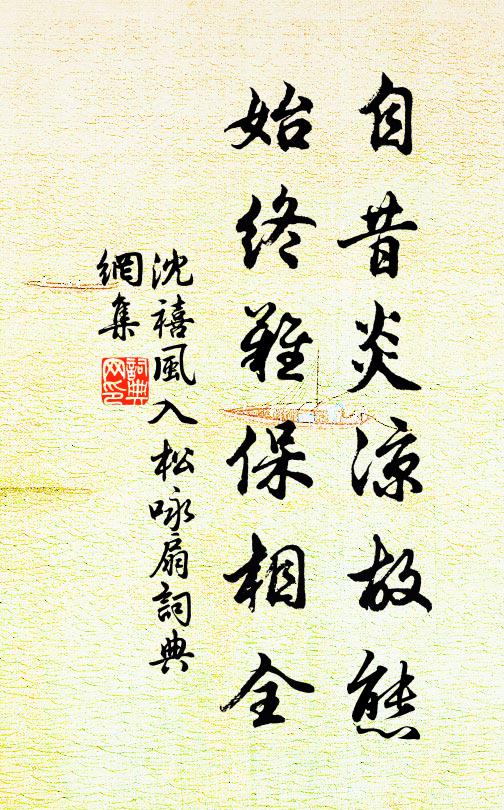 自昔炎涼故態
始終難保相全
沈禧風入松咏扇詞典
網集
詞典
网印